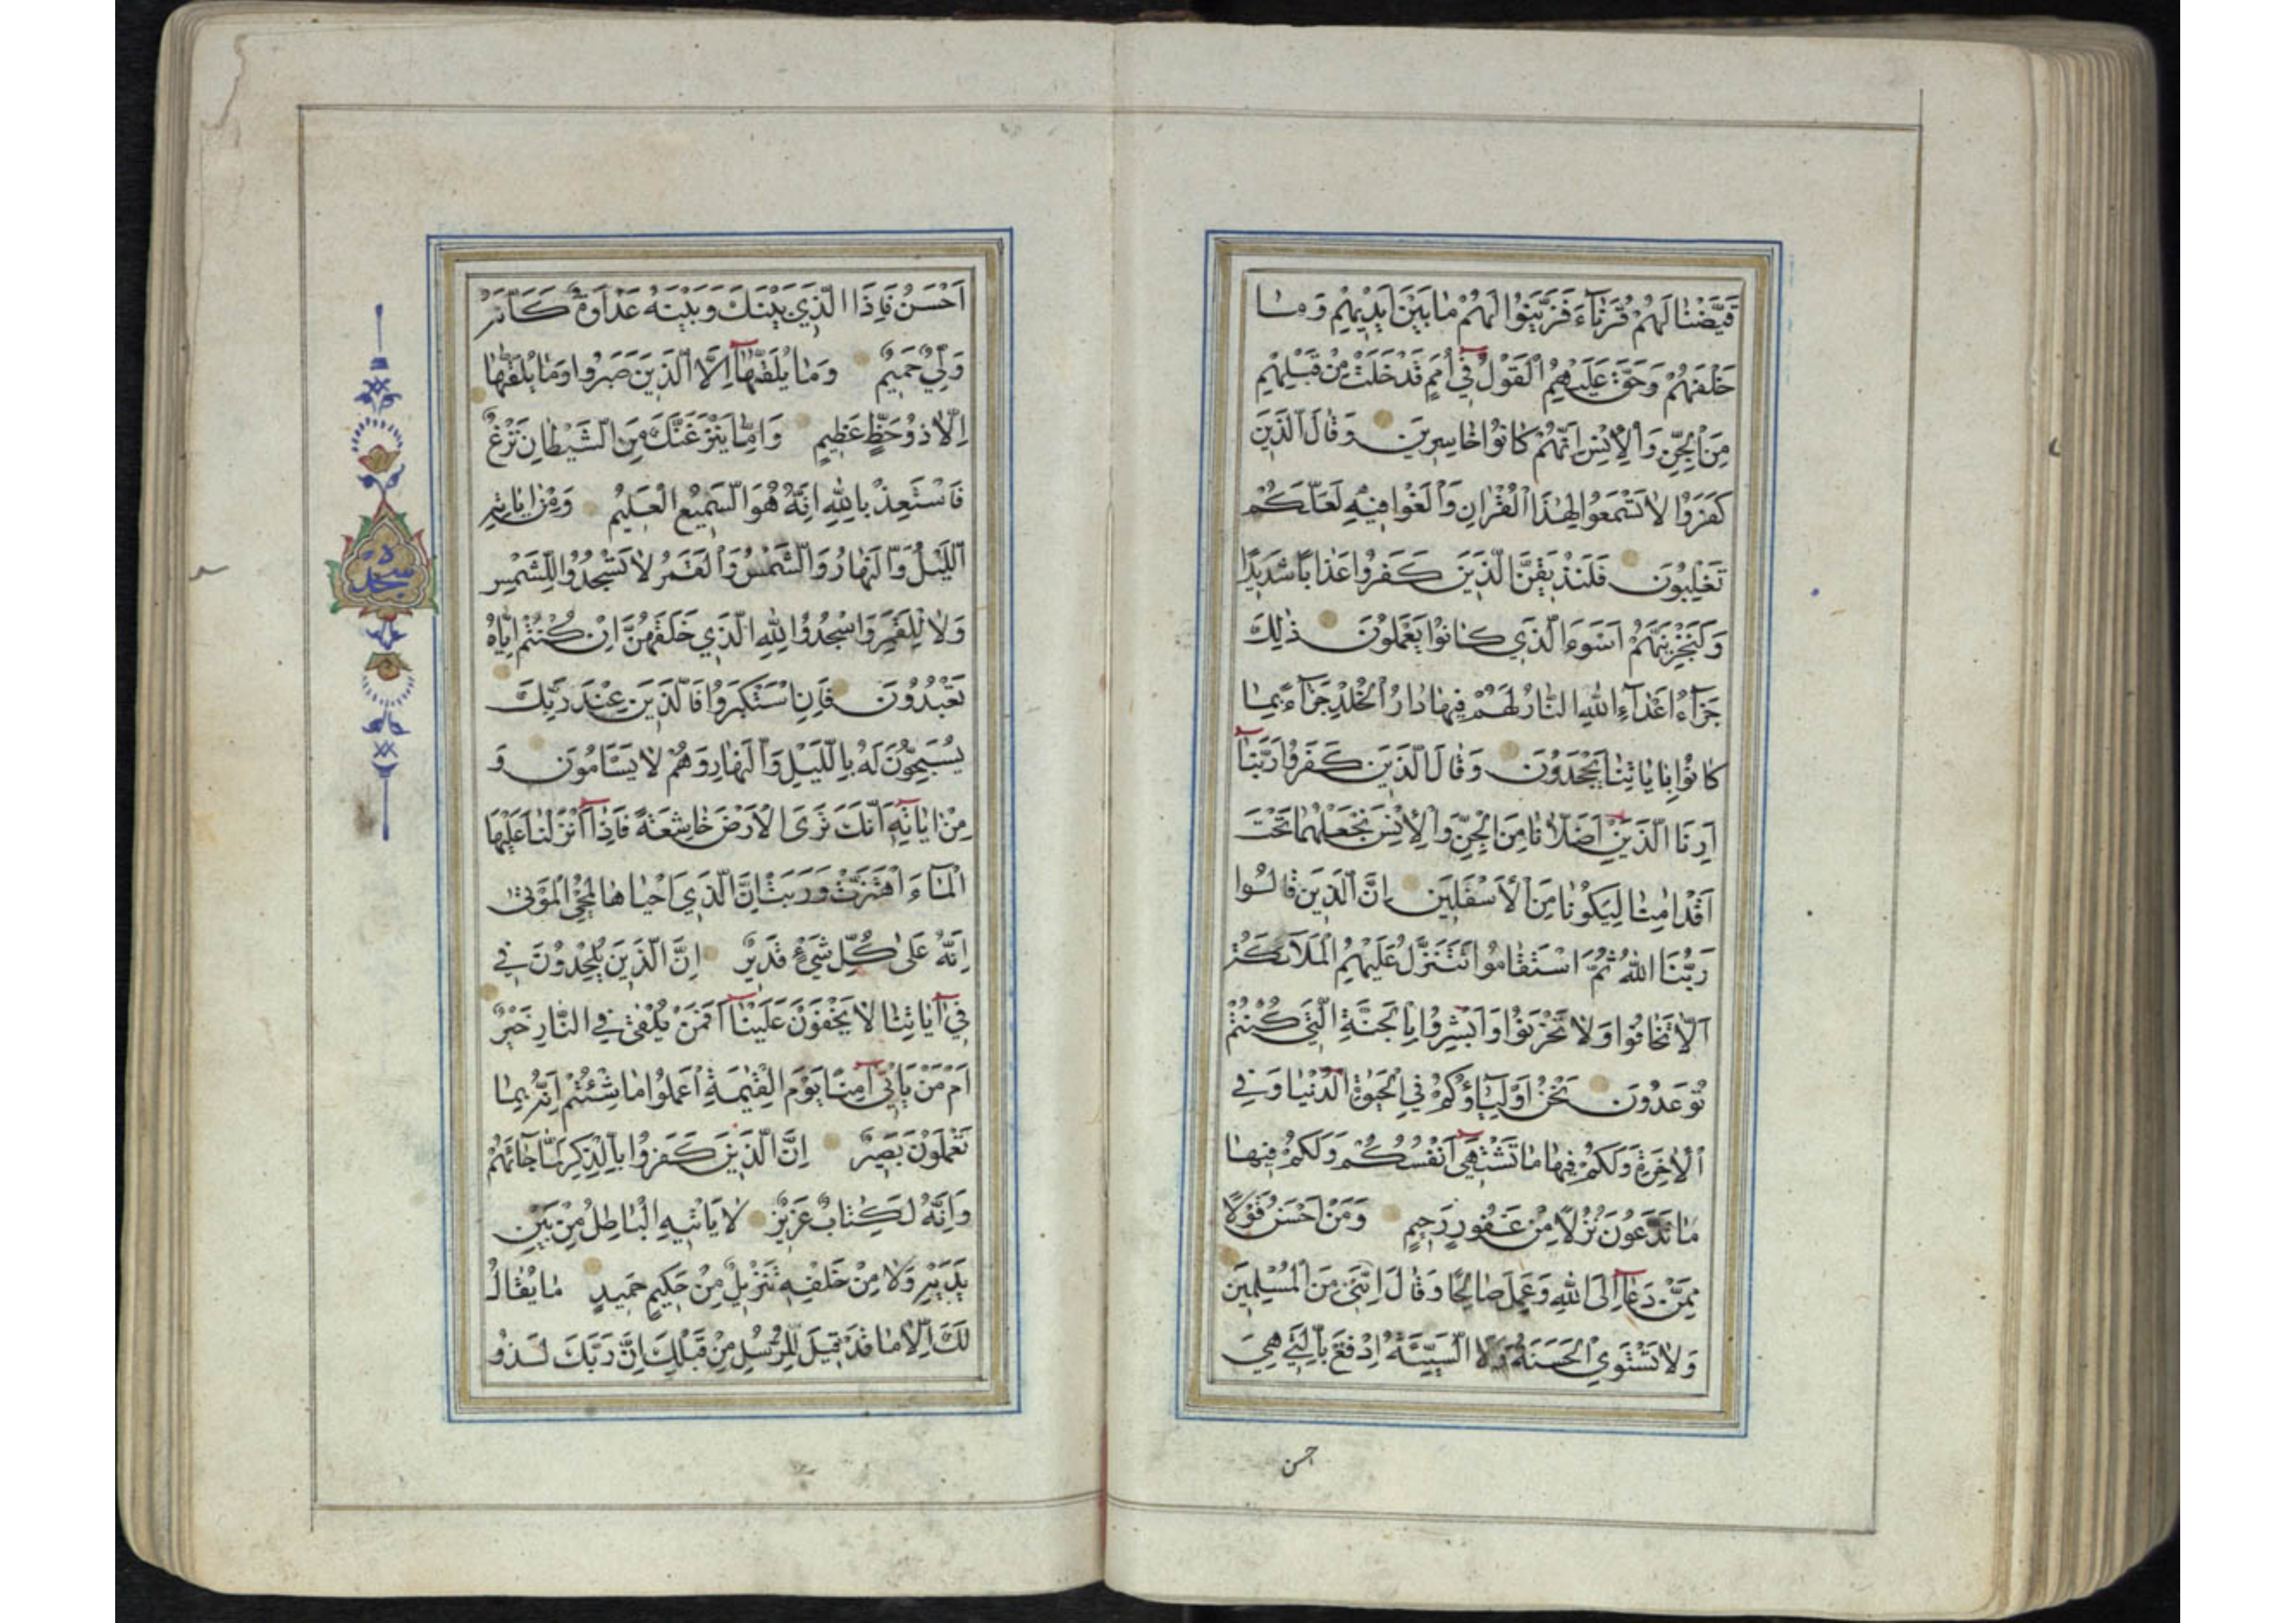 قَيَّضْنَا لَهُمْ قُرَنَآءَ فَزَيَّنُوا لَهُمْ مَا بَيْنَ اَيْدِيهِمْ وَمَا
خَلْفَهُمْ وَحَقَّ عَلَيْهِمُ الْقَوْلُ فِي اُمَمٍ قَدْ خَلَتْ مِنْ قَبْلِهِمْ
مِنَ الْجِنِّ وَالْاِنْسِ اِنَّهُمْ كَانُوا خَاسِرِينَ وَقَالَ الَّذِينَ
كَفَرُوا لَا تَسْمَعُوا لِهٰذَا الْقُرْاٰنِ وَالْغَوْا فِيهِ لَعَلَّكُمْ
تَغْلِبُونَ فَلَنُذِيقَنَّ الَّذِينَ كَفَرُوا عَذَابًا شَدِيدًا
وَلَنَجْزِيَنَّهُمْ اَسْوَءَ الَّذِي كَانُوا يَعْمَلُونَ ذٰلِكَ
جَزَآءُ اَعْدَآءِ اللهِ النَّارُ لَهُمْ فِيهَا دَارُ الْخُلْدِ جَزَآءً بِمَا
كَانُوا بِاٰيَاتِنَا يَجْحَدُونَ وَقَالَ الَّذِينَ كَفَرُوا رَبَّنَا
اَرِنَا الَّذَيْنِ اَضَلَّانَا مِنَ الْجِنِّ وَالْاِنْسِ نَجْعَلْهُمَا تَحْتَ
اَقْدَامِنَا لِيَكُونَا مِنَ الْاَسْفَلِينَ اِنَّ الَّذِينَ قَالُوا
رَبُّنَا اللهُ ثُمَّ اسْتَقَامُوا تَتَنَزَّلُ عَلَيْهِمُ الْمَلَآئِكَةُ
اَلَّا تَخَافُوا وَلَا تَحْزَنُوا وَاَبْشِرُوا بِالْجَنَّةِ الَّتِي كُنْتُمْ
تُوعَدُونَ نَحْنُ اَوْلِيَآؤُكُمْ فِي الْحَيٰوةِ الدُّنْيَا وَفِي
الْاٰخِرَةِ وَلَكُمْ فِيهَا مَا تَشْتَهِي اَنْفُسُكُمْ وَلَكُمْ فِيهَا
مَا تَدَّعُونَ نُزُلًا مِنْ غَفُورٍ رَحِيمٍ وَمَنْ اَحْسَنُ قَوْلًا
مِمَّنْ دَعَآ اِلَى اللهِ وَعَمِلَ صَالِحًا وَقَالَ اِنَّنِي مِنَ الْمُسْلِمِينَ
وَلَا تَسْتَوِي الْحَسَنَةُ وَلَا السَّيِّئَةُ اِدْفَعْ بِالَّتِي هِيَ
احسن
اَحْسَنُ فَاِذَا الَّذِي بَيْنَكَ وَبَيْنَهُ عَدَاوَةٌ كَاَنَّهُ
وَلِيٌّ حَمِيمٌ وَمَا يُلَقّٰهَآ اِلَّا الَّذِينَ صَبَرُوا وَمَا يُلَقّٰهَا
اِلَّا ذُو حَظٍّ عَظِيمٍ وَاِمَّا يَنْزَغَنَّكَ مِنَ الشَّيْطَانِ نَزْغٌ
فَاسْتَعِذْ بِاللهِ اِنَّهُ هُوَ السَّمِيعُ الْعَلِيمُ وَمِنْ اٰيَاتِهِ
اللَّيْلُ وَالنَّهَارُ وَالشَّمْسُ وَالْقَمَرُ لَا تَسْجُدُوا لِلشَّمْسِ
وَلَا لِلْقَمَرِ وَاسْجُدُوا لِلهِ الَّذِي خَلَقَهُنَّ اِنْ كُنْتُمْ اِيَّاهُ
تَعْبُدُونَ فَاِنِ اسْتَكْبَرُوا فَالَّذِينَ عِنْدَ رَبِّكَ
يُسَبِّحُونَ لَهُ بِاللَّيْلِ وَالنَّهَارِ وَهُمْ لَا يَسْاَمُونَ وَ
مِنْ اٰيَاتِهِ اَنَّكَ تَرَى الْاَرْضَ خَاشِعَةً فَاِذَآ اَنْزَلْنَا عَلَيْهَا
الْمَآءَ اهْتَزَّتْ وَرَبَتْ اِنَّ الَّذِي اَحْيَاهَا لَمُحْيِ الْمَوْتٰى
اِنَّهُ عَلٰى كُلِّ شَيْءٍ قَدِيرٌ اِنَّ الَّذِينَ يُلْحِدُونَ فِي
فِي اٰيَاتِنَا لَا يَخْفَوْنَ عَلَيْنَآ اَفَمَنْ يُلْقٰى فِي النَّارِ خَيْرٌ
اَمْ مَنْ يَاْتِي اٰمِنًا يَوْمَ الْقِيٰمَةِ اعْمَلُوا مَا شِئْتُمْ اِنَّهُ بِمَا
تَعْمَلُونَ بَصِيرٌ اِنَّ الَّذِينَ كَفَرُوا بِالذِّكْرِ لَمَّا جَآءَهُمْ
وَاِنَّهُ لَكِتَابٌ عَزِيزٌ لَا يَاْتِيهِ الْبَاطِلُ مِنْ بَيْنِ
يَدَيْهِ وَلَا مِنْ خَلْفِهِ تَنْزِيلٌ مِنْ حَكِيمٍ حَمِيدٍ مَا يُقَالُ
لَكَ اِلَّا مَا قَدْ قِيلَ لِلرُّسُلِ مِنْ قَبْلِكَ اِنَّ رَبَّكَ لَذُو
سجده